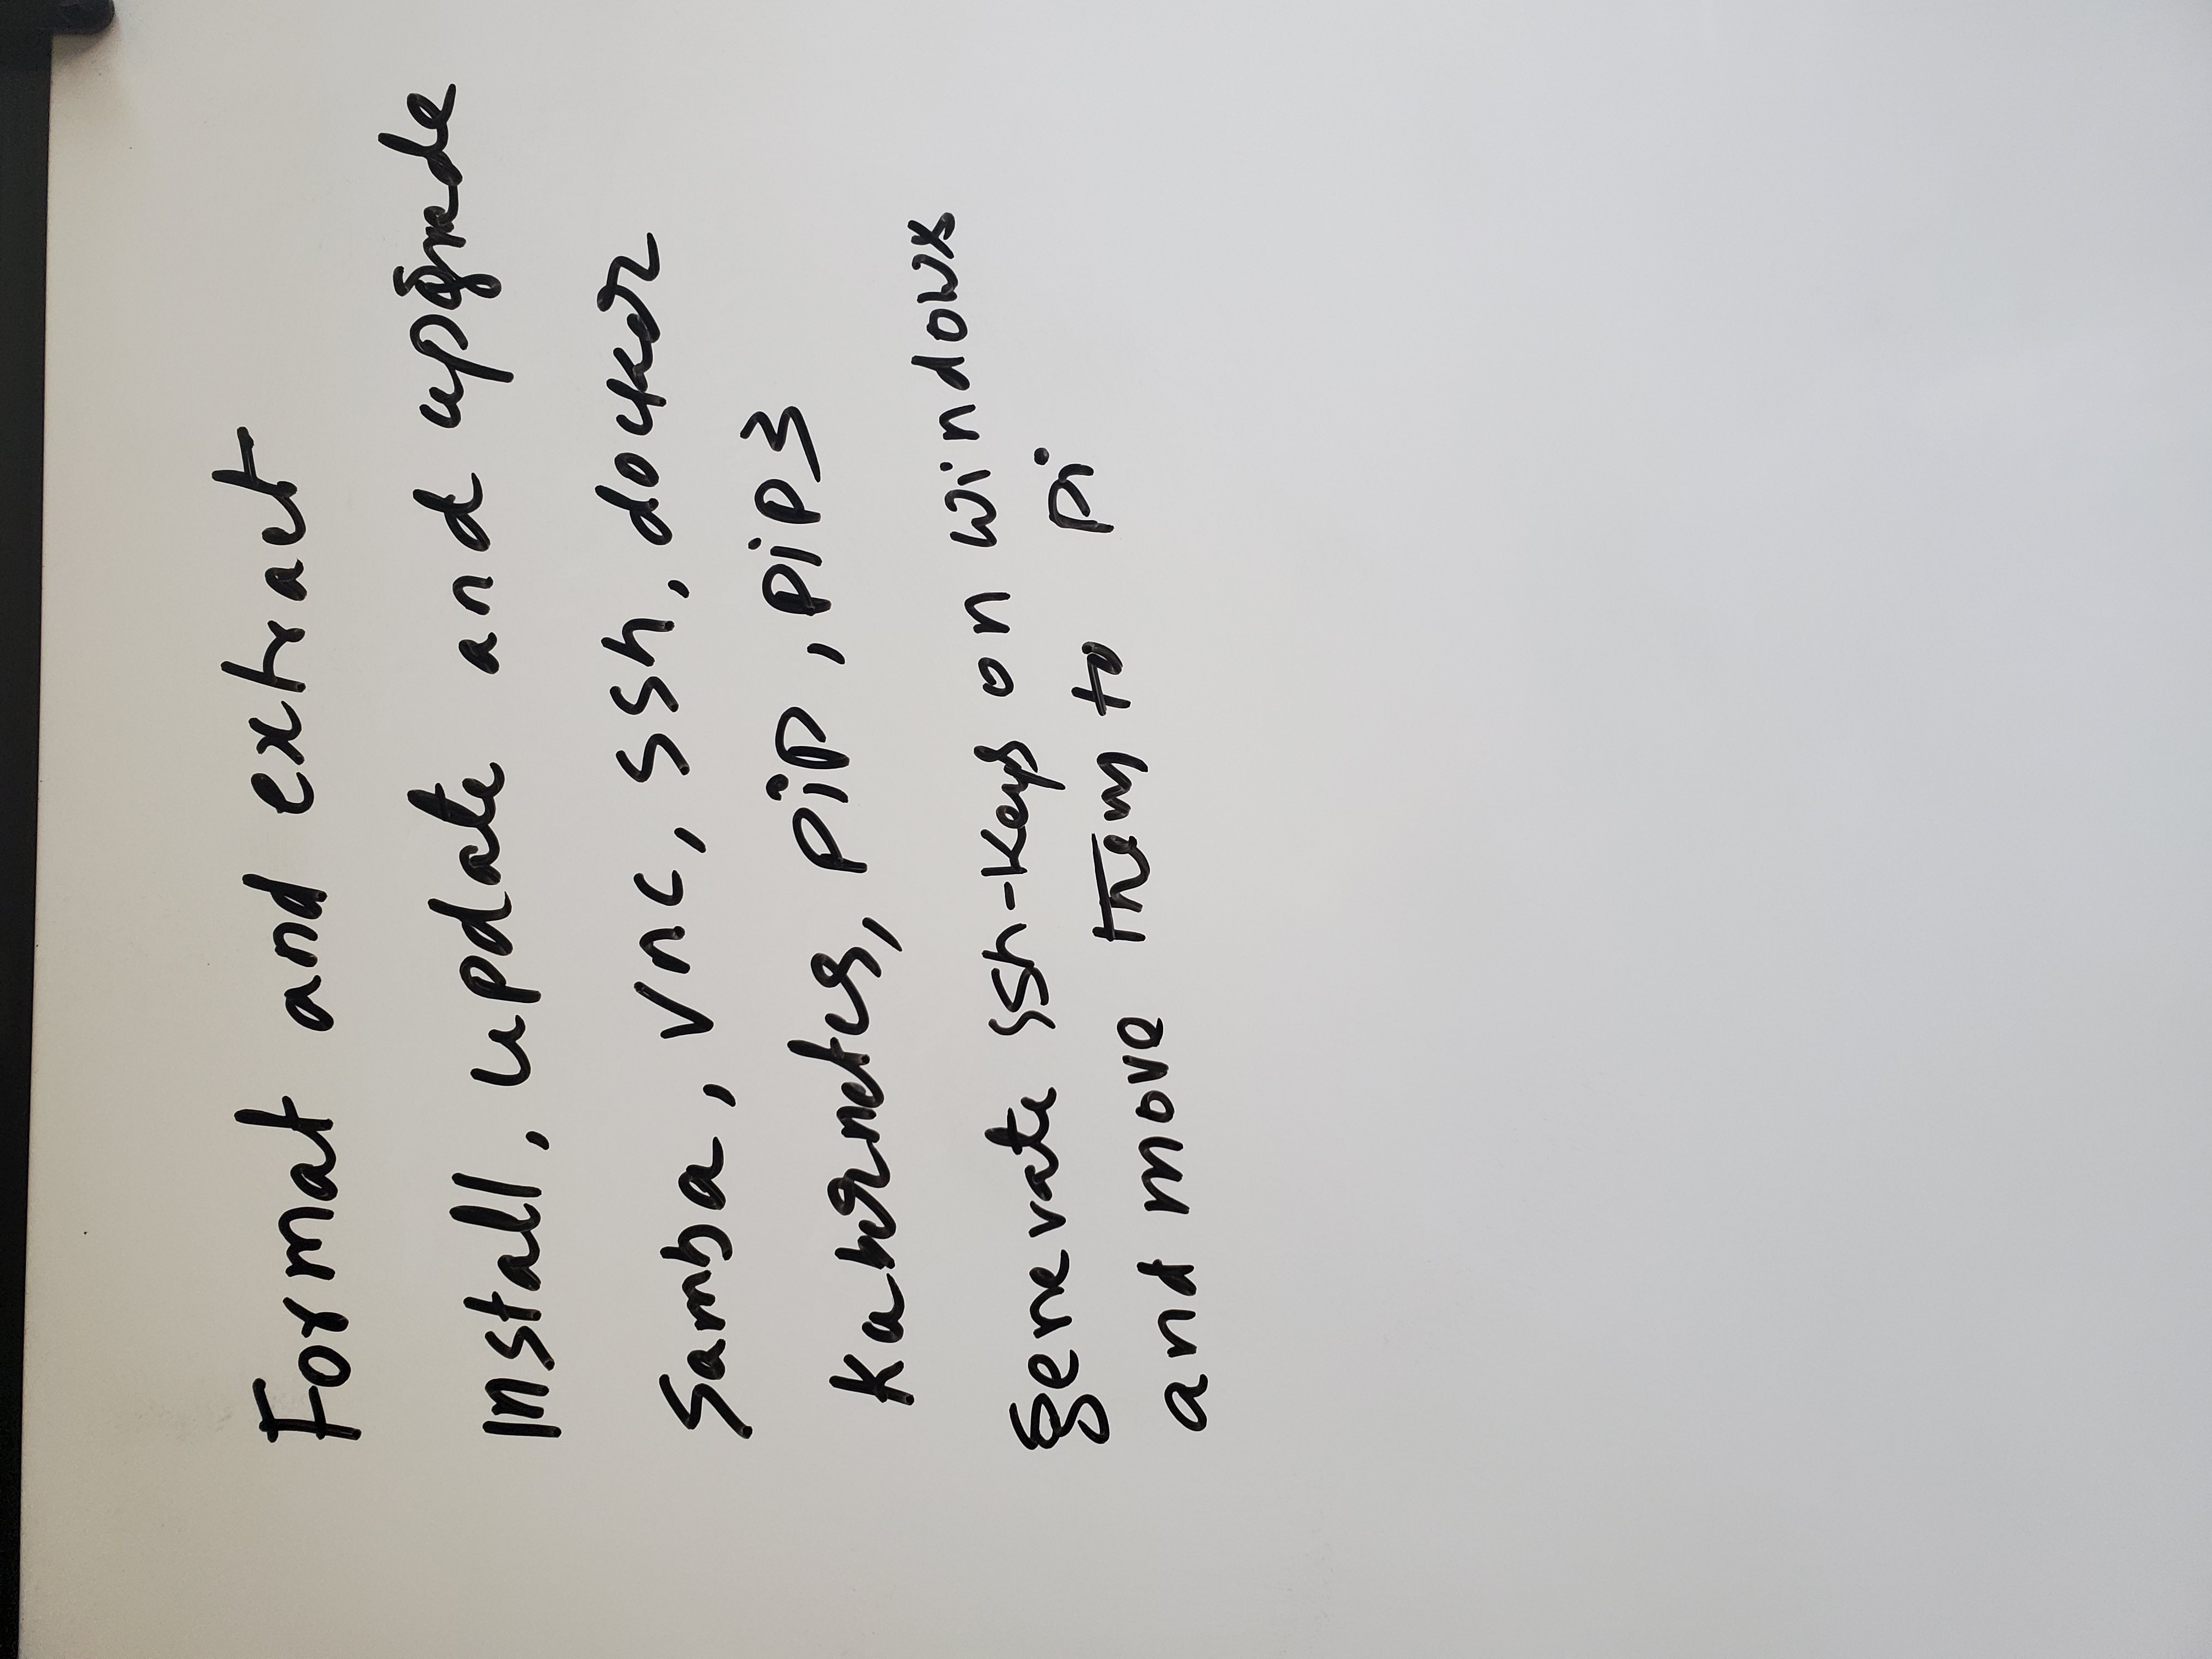 Format and extract
Install, update and upgrade
Samba, vnc, ssh, docker
Kabernetes, pip, pip3
generate ssh-keys on windows
and move them to pi